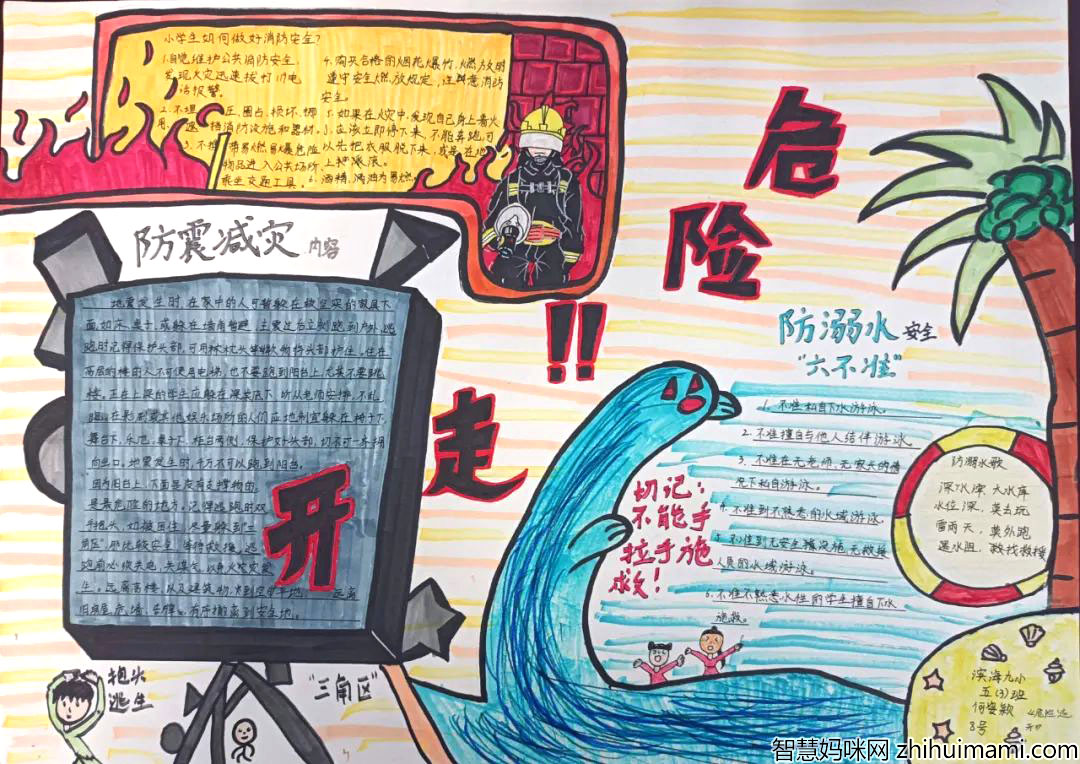 小学生如何做好消防安全?
1.自觉维护公共消防安全,
发现火灾迅速拨打119电
话报警。
圧、圈占、损坏、挪
用、消防设施和器材。
易燃易爆危险
物品进入公共场所、
乘坐交通工具。
4.购买合格的烟花爆竹,燃放时
遵守安全燃放规定,注意消防
安全。
5.如果在火灾中,发现自己身上着火
,应该立即停下来,不能奔跑,可
以先把衣服脱下来,或是在地
上打滚滚。
6.酒精、汽油为易燃
危险
!!
走
开
防震减灾 内容
地震发生时,在家中的人可暂躲在较坚实的家具下
面,如床、桌子,或躲在墙角暂避,主震过后立刻跑到户外,逃
跑时记得保护头部,可用
高层的楼的人不可使用电梯,也不要跑到阳台上,尤其不要跳
楼。正在上课的学生应躲在课桌底下,听从老师安排,不乱
跑。在影剧院其他娱乐场所的人们应地制宜躲在椅子下
舞台下、乐池、桌子下、柜台两侧,保护好头部,切忌可一齐拥
向出口。地震发生时,千万不可以跑到阳台。
因为阳台上、下面是没有支撑物的,
是最危险的地方。记得逃跑时双
手抱头,如被困住,尽量躲到“三
角区”那比较安全,等待救援。逃
生。远离高楼、以及建筑物,
防溺水 安全
“六不准”
1.不准私自下水游泳。
2.不准擅自与他人结伴游泳。
3.不准在无老师、无家长的情
况下私自游泳。
4.不准到不熟悉的水域游泳。
5.不准到无安全设施、无救援
人员的水域游泳。
6.不准不熟悉水性的学生擅自下水
施救。
切记:
不能手
拉手施
救!
防溺水歌
深水潭,大水库
水位深,莫去玩
雷雨天,莫外跑
遇水阻,敢找救援
抱头
逃生
“三角区”
滨海九小
五(3)班
何姿颖
8号
智慧妈咪网 zhihuimami.com